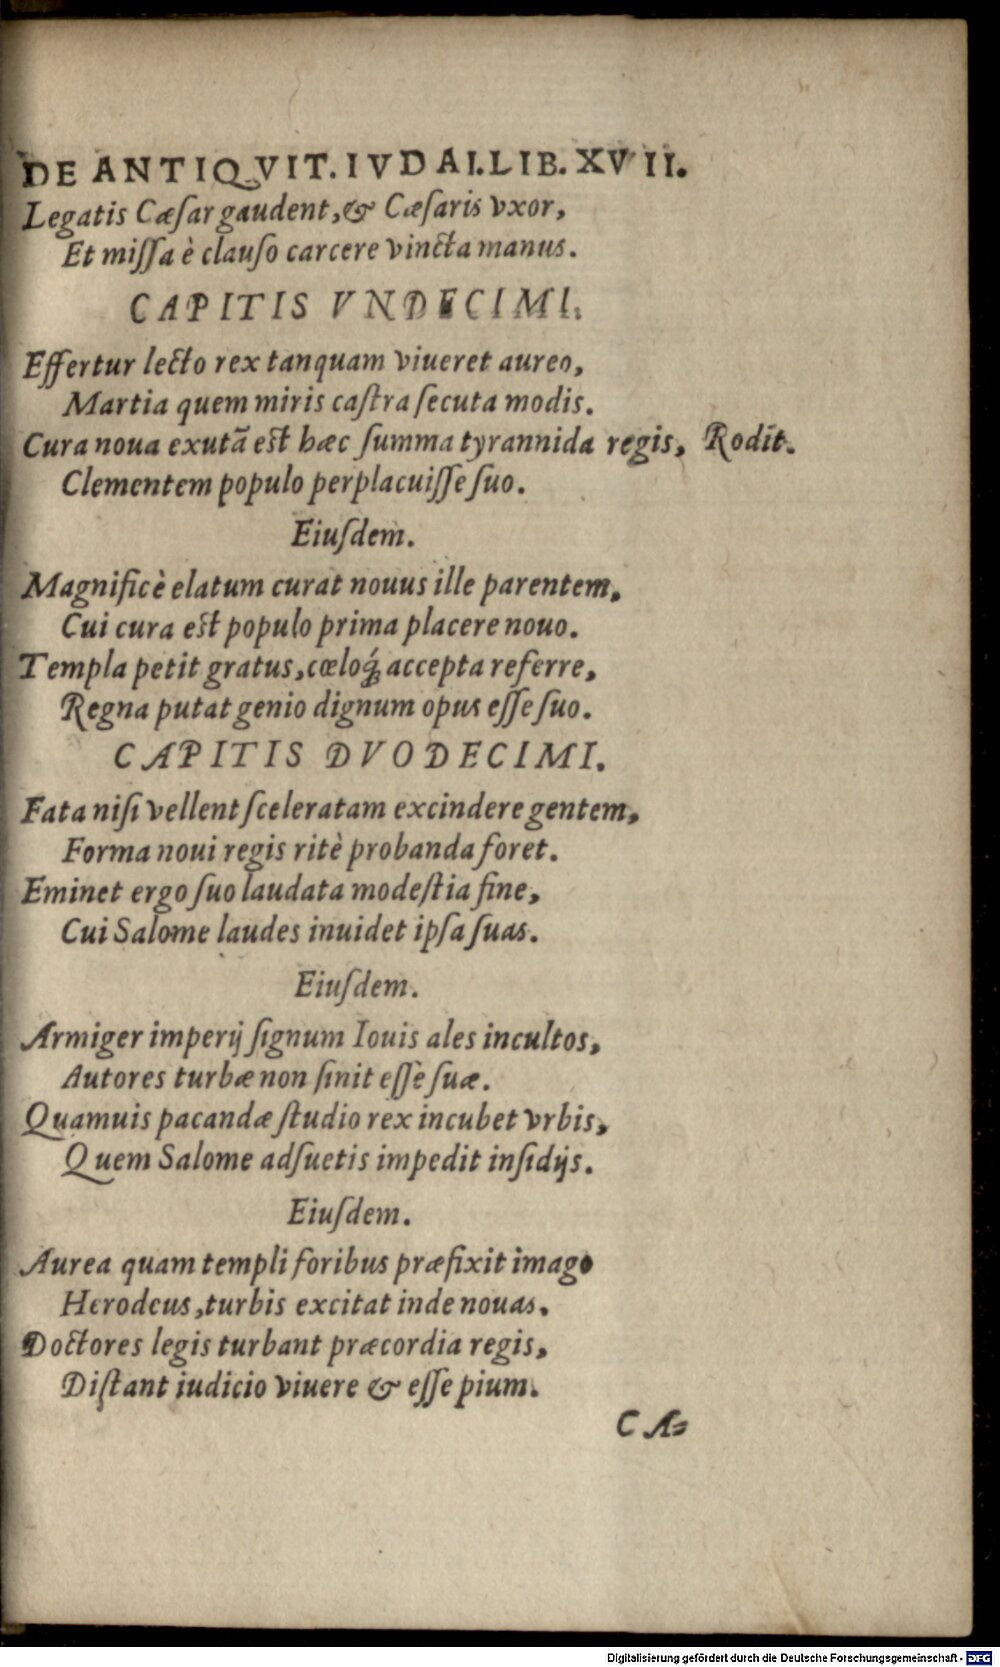 DE ANTIQVIT. IVDAI. LIB. XVII.
Legatis Cæſar gaudent, & Cæſaris vxor,
Et miſſa è clauſo carcere vincta manus.
CAPITIS VNDECIMI.
Effertur lecto rex tanquam viueret aureo,
Martia quem miris caſtra ſecuta modis.
Cura noua exutã eſt hæc ſumma tyrannida regis, Rodit.
Clementem populo perplacuiſſe ſuo.
Eiuſdem.
Magnificè elatum curat nouus ille parentem,
Cui cura eſt populo prima placere nouo.
Templa petit gratus, cœloq́; accepta referre,
Regna putat genio dignum opus eſſe ſuo.
CAPITIS DVODECIMI.
Fata niſi vellent ſceleratam excindere gentem,
Forma noui regis ritè probanda foret.
Eminet ergo ſuo laudata modeſtia fine,
Cui Salome laudes inuidet ipſa ſuas.
Eiuſdem.
Armiger imperij ſignum Iouis ales incultos,
Autores turbæ non ſinit eſſè ſuæ.
Quamuis pacandæ ſtudio rex incubet vrbis,
Quem Salome adſuetis impedit inſidijs.
Eiuſdem.
Aurea quam templi foribus præfixit imago
Herodeus, turbis excitat inde nouas.
Doctores legis turbant præcordia regis,
Diſtant iudicio viuere & eſſe pium.
CA-
Digitalisierung gefördert durch die Deutsche Forschungsgemeinschaft - DFG